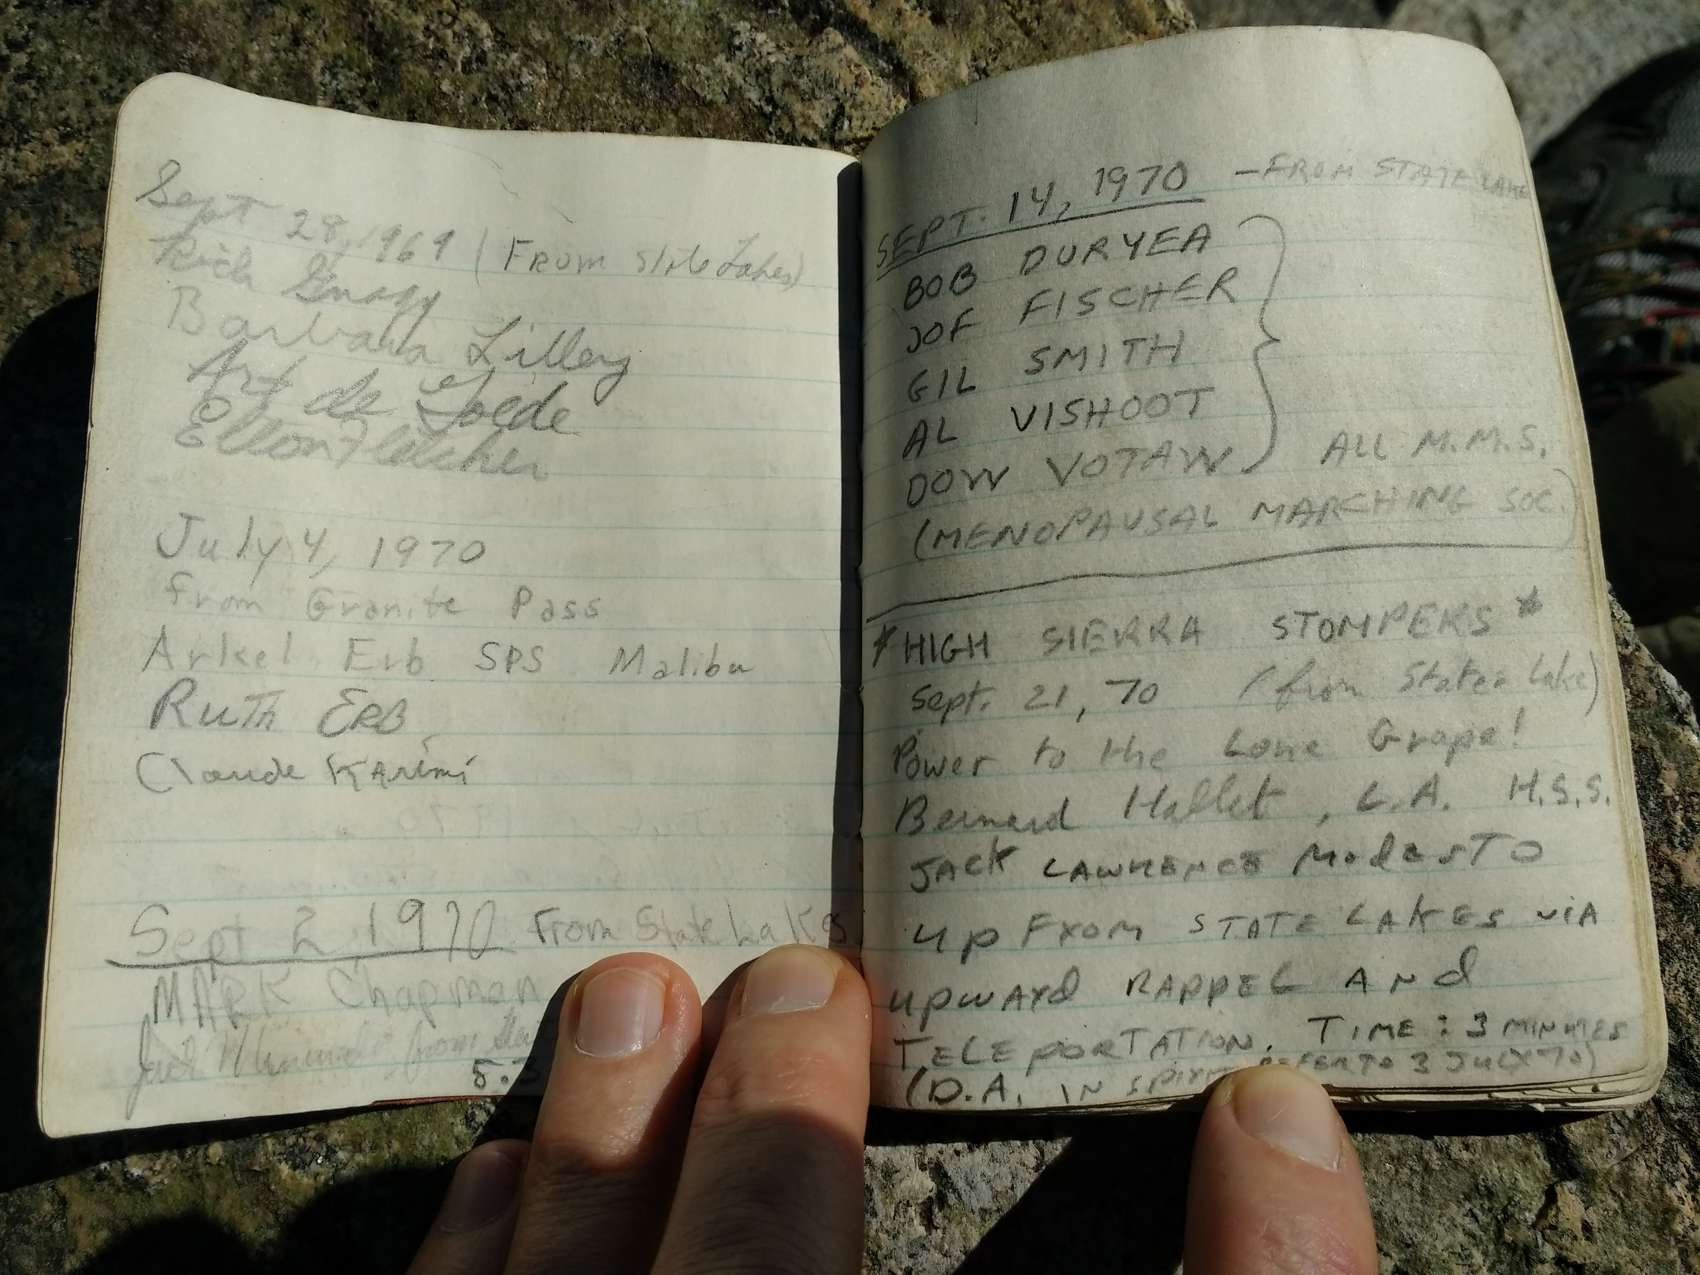 Sept 28, 1969 (From State Lakes)
Rich Gnagy
Barbara Lilley
Art de Goede
Fletcher
July 4, 1970
from Granite Pass
Arkel Erb SPS Malibu
RUTH ERB
Claude Karimi
Sept 2, 1970 From State Lakes
MARK Chapman
Jack from
5.3
SEPT. 14, 1970 - FROM STATE LAKE
BOB DURYEA
JOF FISCHER
GIL SMITH
AL VISHOOT
DOW VOTAW } ALL M.M.S.
(MENOPAUSAL MARCHING SOC.)
* HIGH SIERRA STOMPERS *
Sept. 21, 70 (from States Lake)
Power to the Lone Grape!
Bernard Hallet, L.A. H.S.S.
JACK LAWRENCE ModesTO
up From STATE LAKES viA
upward RAPPEL ANd
TELEPORTATION. TIME: 3 MINUTES
(D.A. IN SPIRIT REFER TO 3 JULY 70)